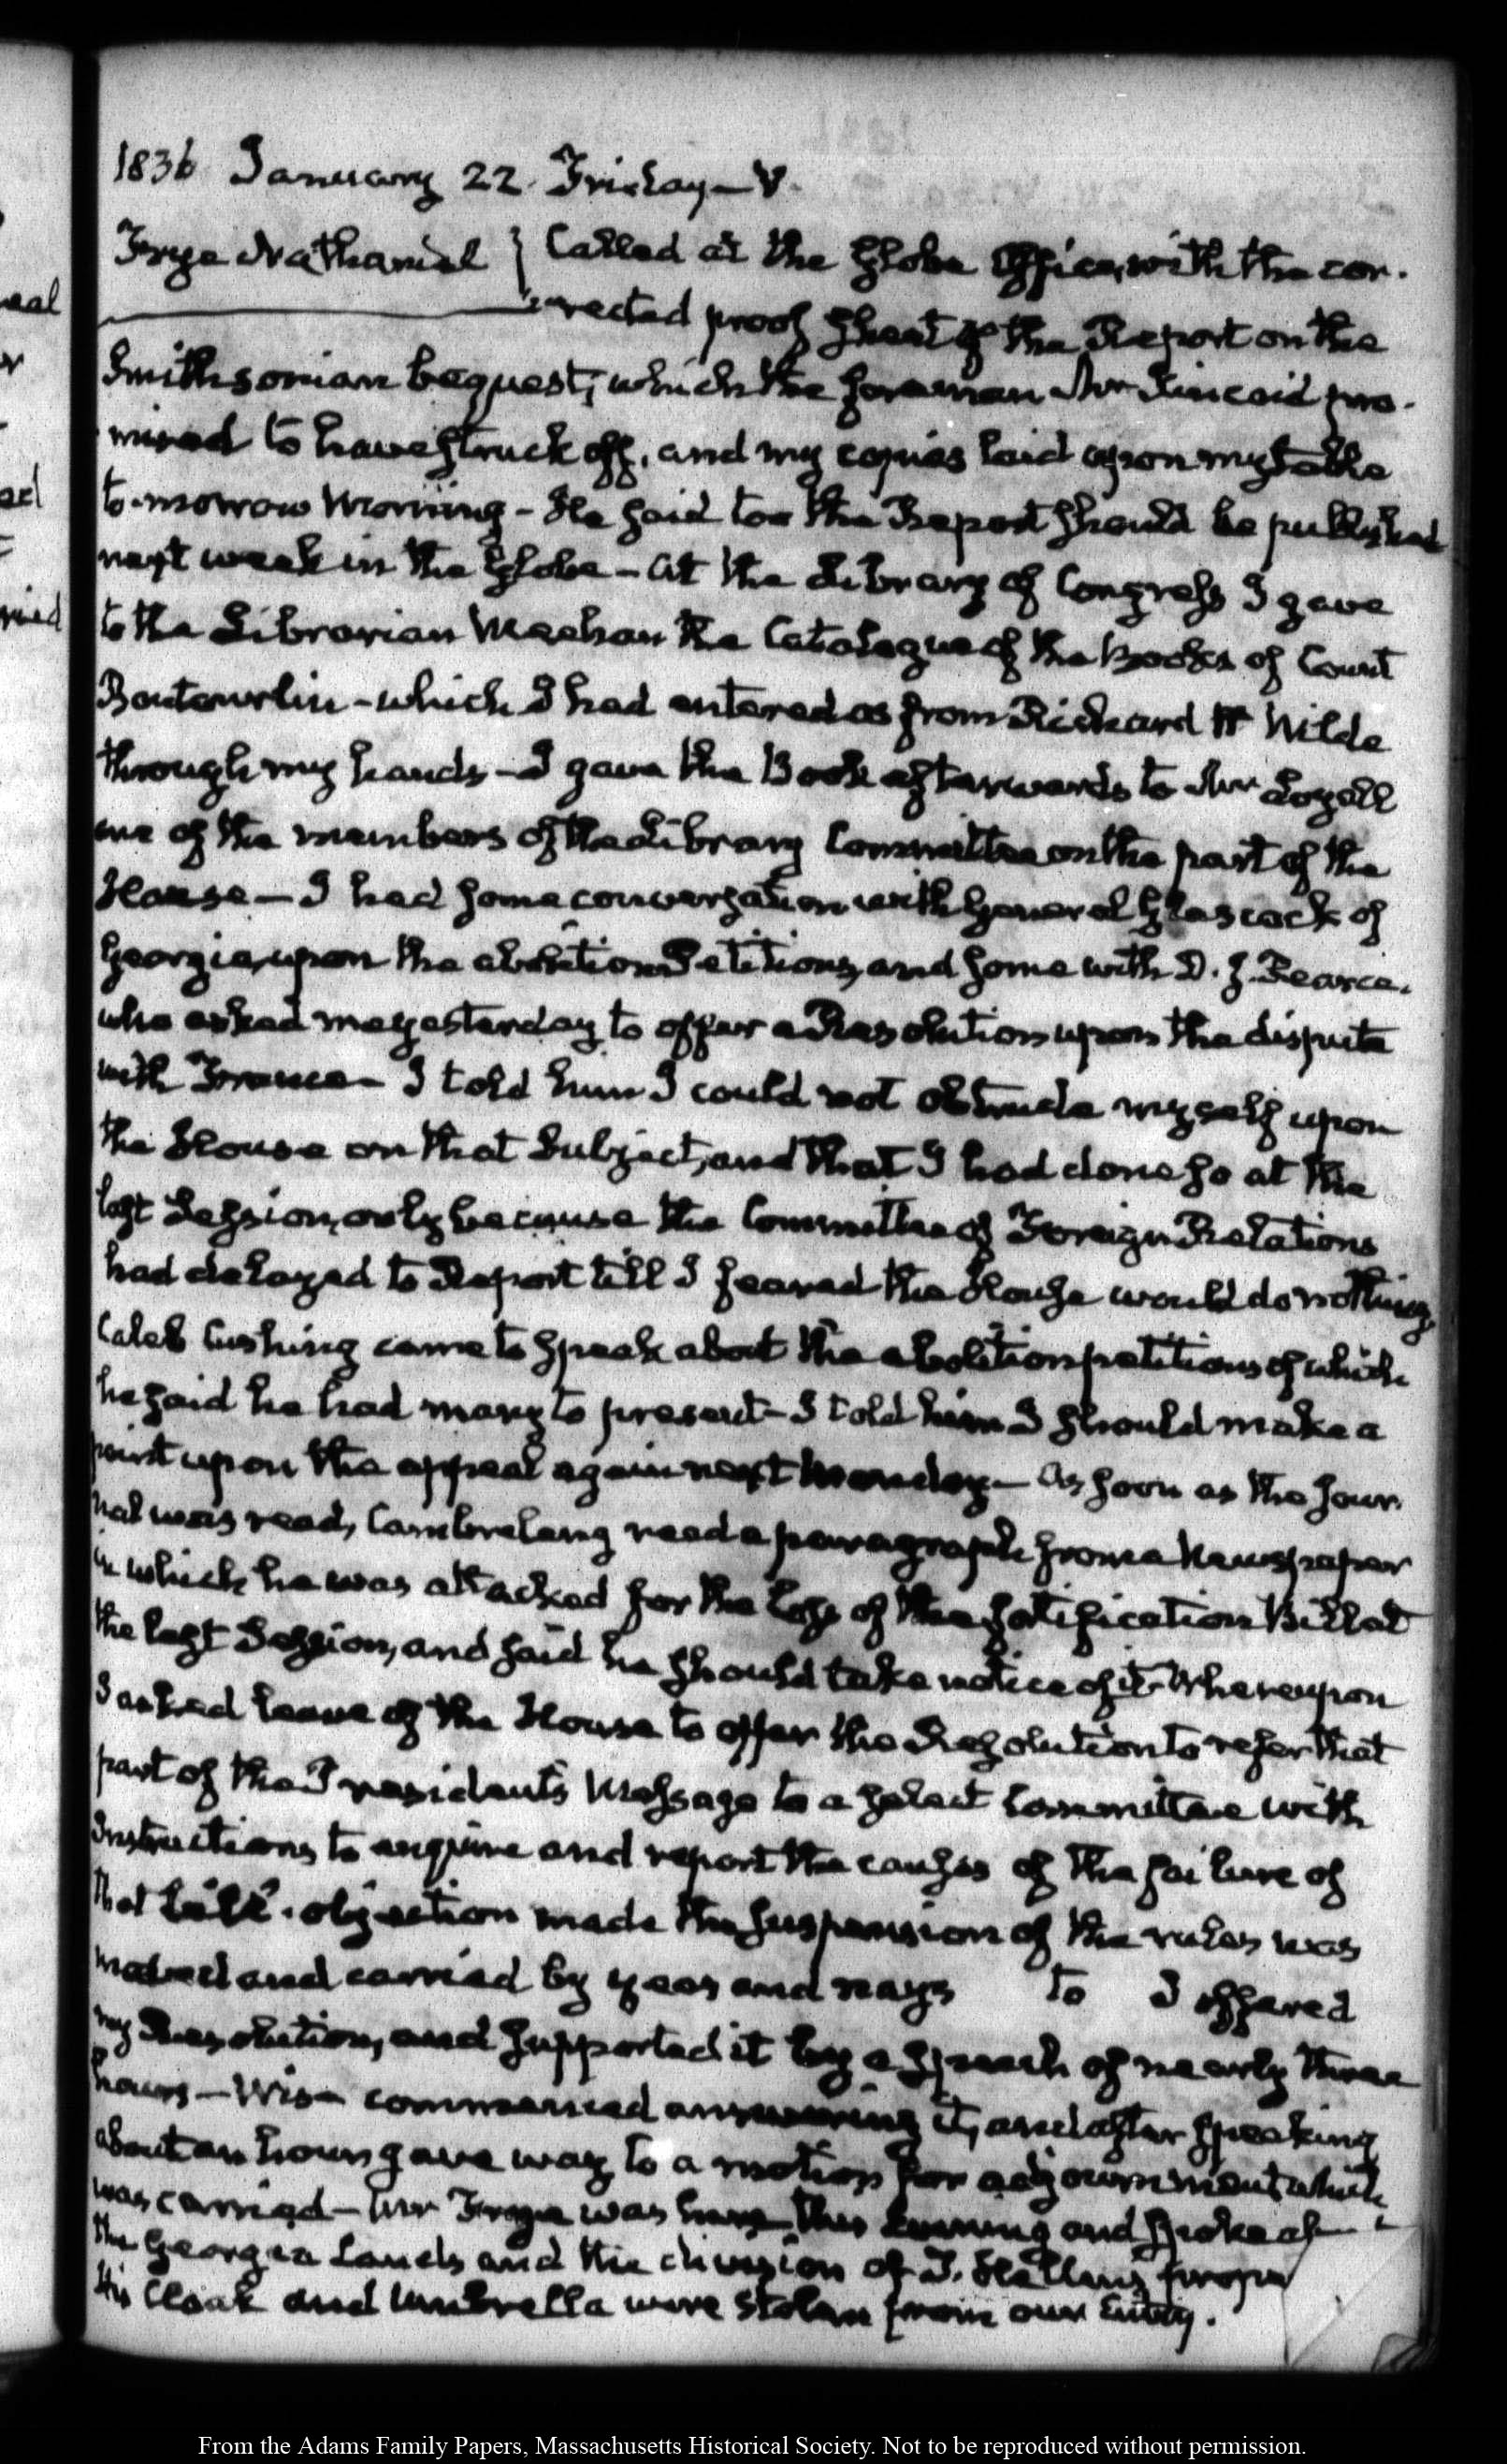 1836 January 22. Friday — V.
Frye Nathaniel } Called at the Globe Office, with the cor-
rected proof sheet of the Report on the
Smithsonian bequest, which the foreman Mr Kincaid pro-
mised to have struck off, and my copies laid upon my table
to-morrow Morning - He said too the Report should be published
next week in the Globe - At the Library of Congress I gave
to the Librarian Meehan the Catalogue of the Books of Count
Boutourlin - which I had entered as from Richard H Wilde
through my hands - I gave the Book afterwards to Mr Loyall
one of the members of the Library Committee on the part of the
House — I had some conversation with General Glascock of
Georgia, upon the abolition Petitions, and some with D. J. Pearce.
who asked me yesterday to offer a Resolution upon the dispute
with France - I told him I could not obtrude myself upon
the House on that Subject, and that I had done so at the
last Session, only because the Committee of Foreign Relations
had delayed to Report till I feared the House would do nothing
Caleb Cushing came to speak about the abolition petitions of which
he said he had many to present - I told him I should make a
point upon the appeal again next Monday — As soon as the Jour-
nal was read, Cambreleng read a paragraph from a Newspaper
in which he was attacked for the loss of the fortification Bill at
the last Session, and said he should take notice of it - Whereupon
I asked leave of the House to offer the Resolution to refer that
part of the President's Message to a select Committee with
Instructions to enquire and report the causes of the failure of
that bill. objection made the suspension of the rules was
moved and carried by yeas and nays to I offered
my Resolution, and supported it by a speech of nearly three
hours — Wise commenced answering it, and after speaking
about an hour gave way to a motion for adjournment which
was carried — Mr Frye was here this Evening and spoke of
the Georgia Lands and the division of T. Hellen's
His Cloak and Umbrella were stolen from our Entry.
From the Adams Family Papers, Massachusetts Historical Society. Not to be reproduced without permission.